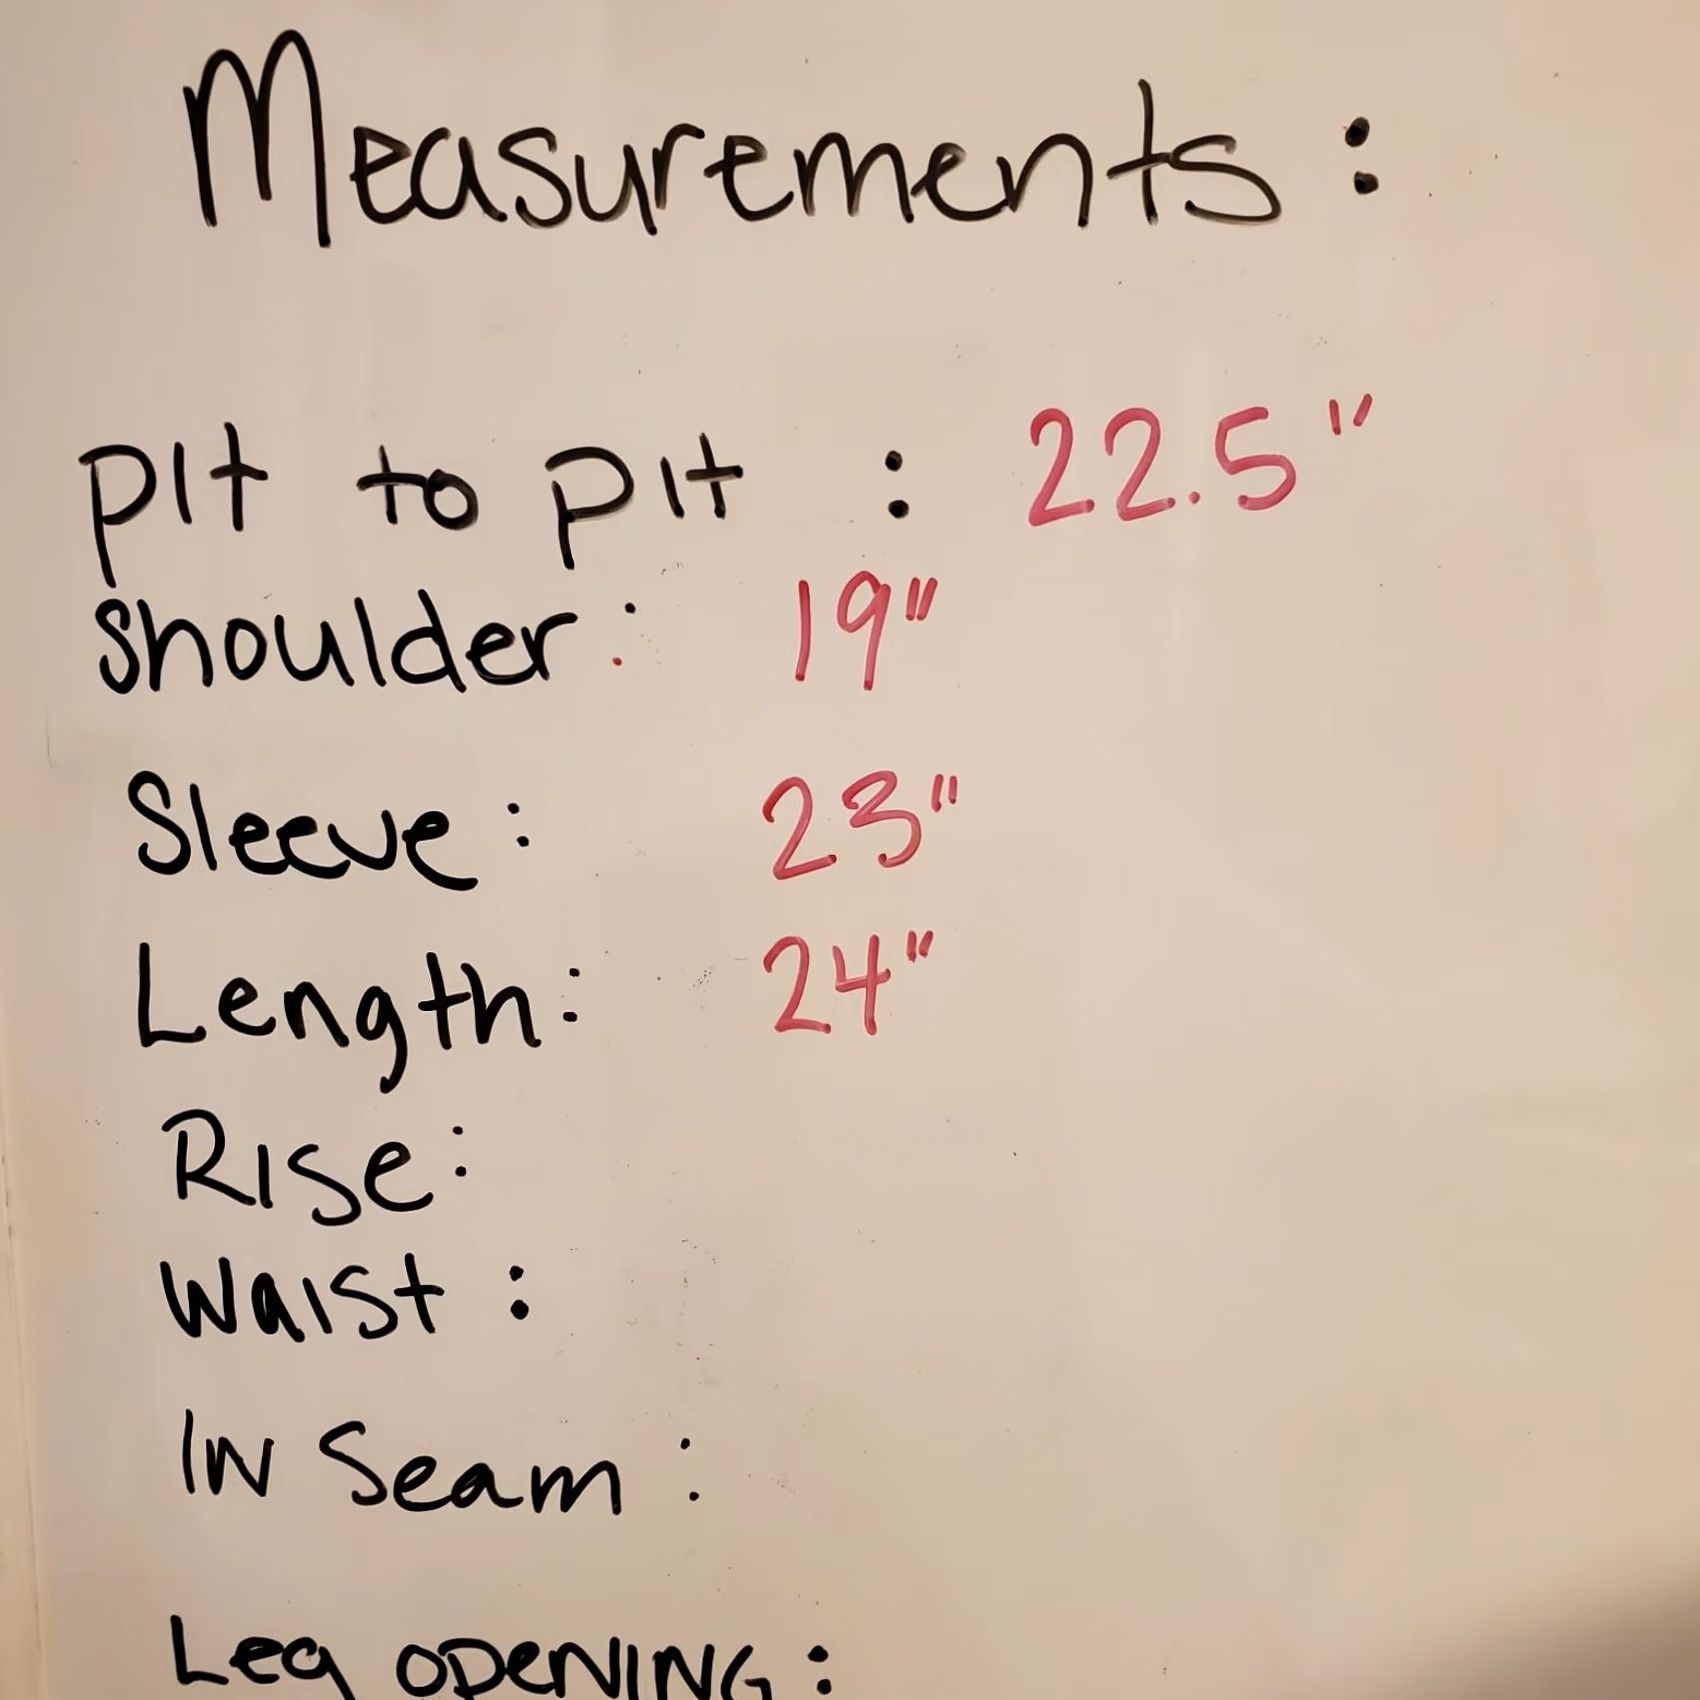 Measurements:
pit to pit : 22.5"
shoulder: 19"
Sleeve: 23"
Length: 24"
Rise:
Waist:
In Seam:
Leg opening: